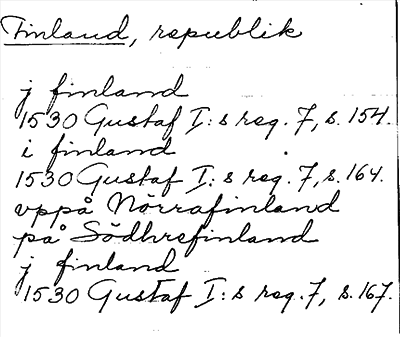 Finland, republik
j finland
1530 Gustaf I:s reg. 7, s. 154.
i finland
1530 Gustaf I:s reg. 7, s. 164.
vppå Nörrafinland
på Södhrefinland
j finland
1530 Gustaf I:s reg. 7, s. 167.